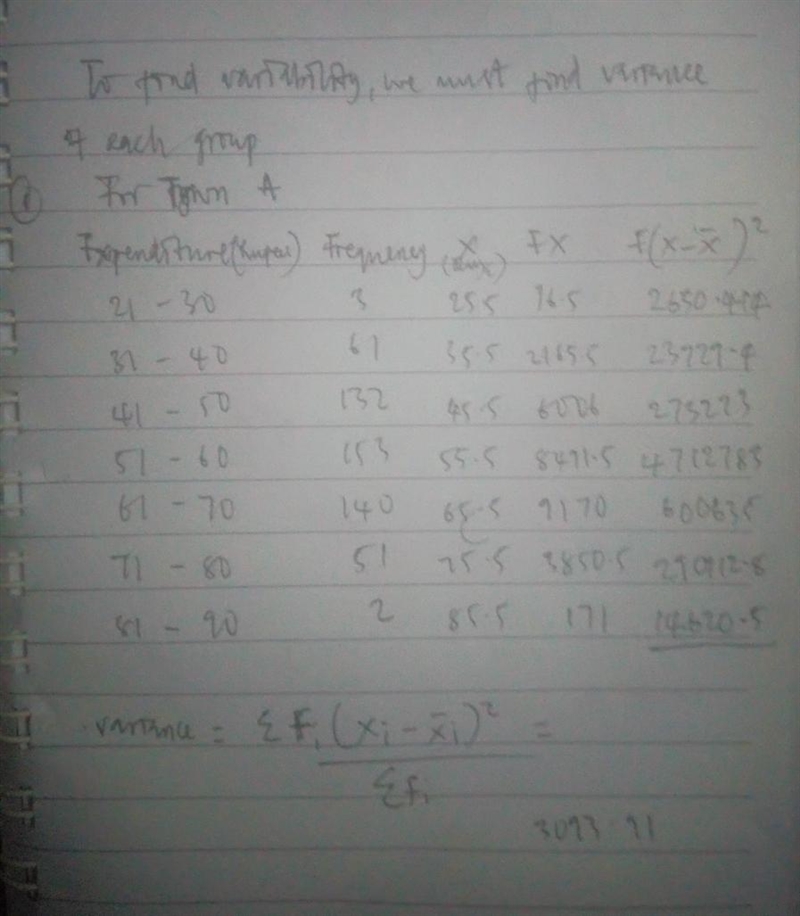 To find variability, we must find variance
of each group
① For Town A
Expenditure(Rupees) Frequency X FX F(x-x̄)²
21 - 30 3 25.5 76.5 2650.
31 - 40 61 35.5 2165.5 23729.4
41 - 50 132 45.5 6006 275273
51 - 60 153 55.5 8491.5 4712783
61 - 70 140 65.5 9170 600635
71 - 80 51 75.5 3850.5 290912.8
81 - 90 2 85.5 171 14620.5
variance = Σ Fi (xi - x̄i)² =
Σfi
3093.91